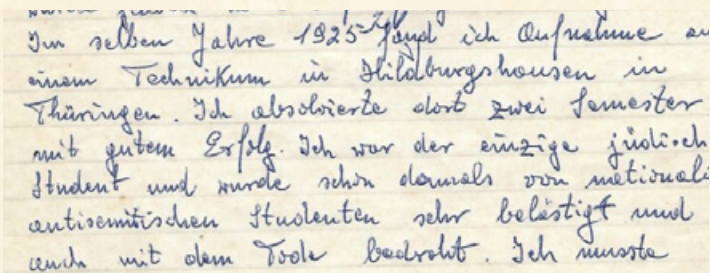 Im selben Jahre 1925 fand ich Aufnahme an
einem Technikum in Hildburghausen in
Thüringen. Ich absolvierte dort zwei Semester
mit gutem Erfolg. Ich war der einzige jüdisch
Student und wurde schon damals von nationali
antisemitischen Studenten sehr belästigt und
auch mit dem Tode bedroht. Ich musste